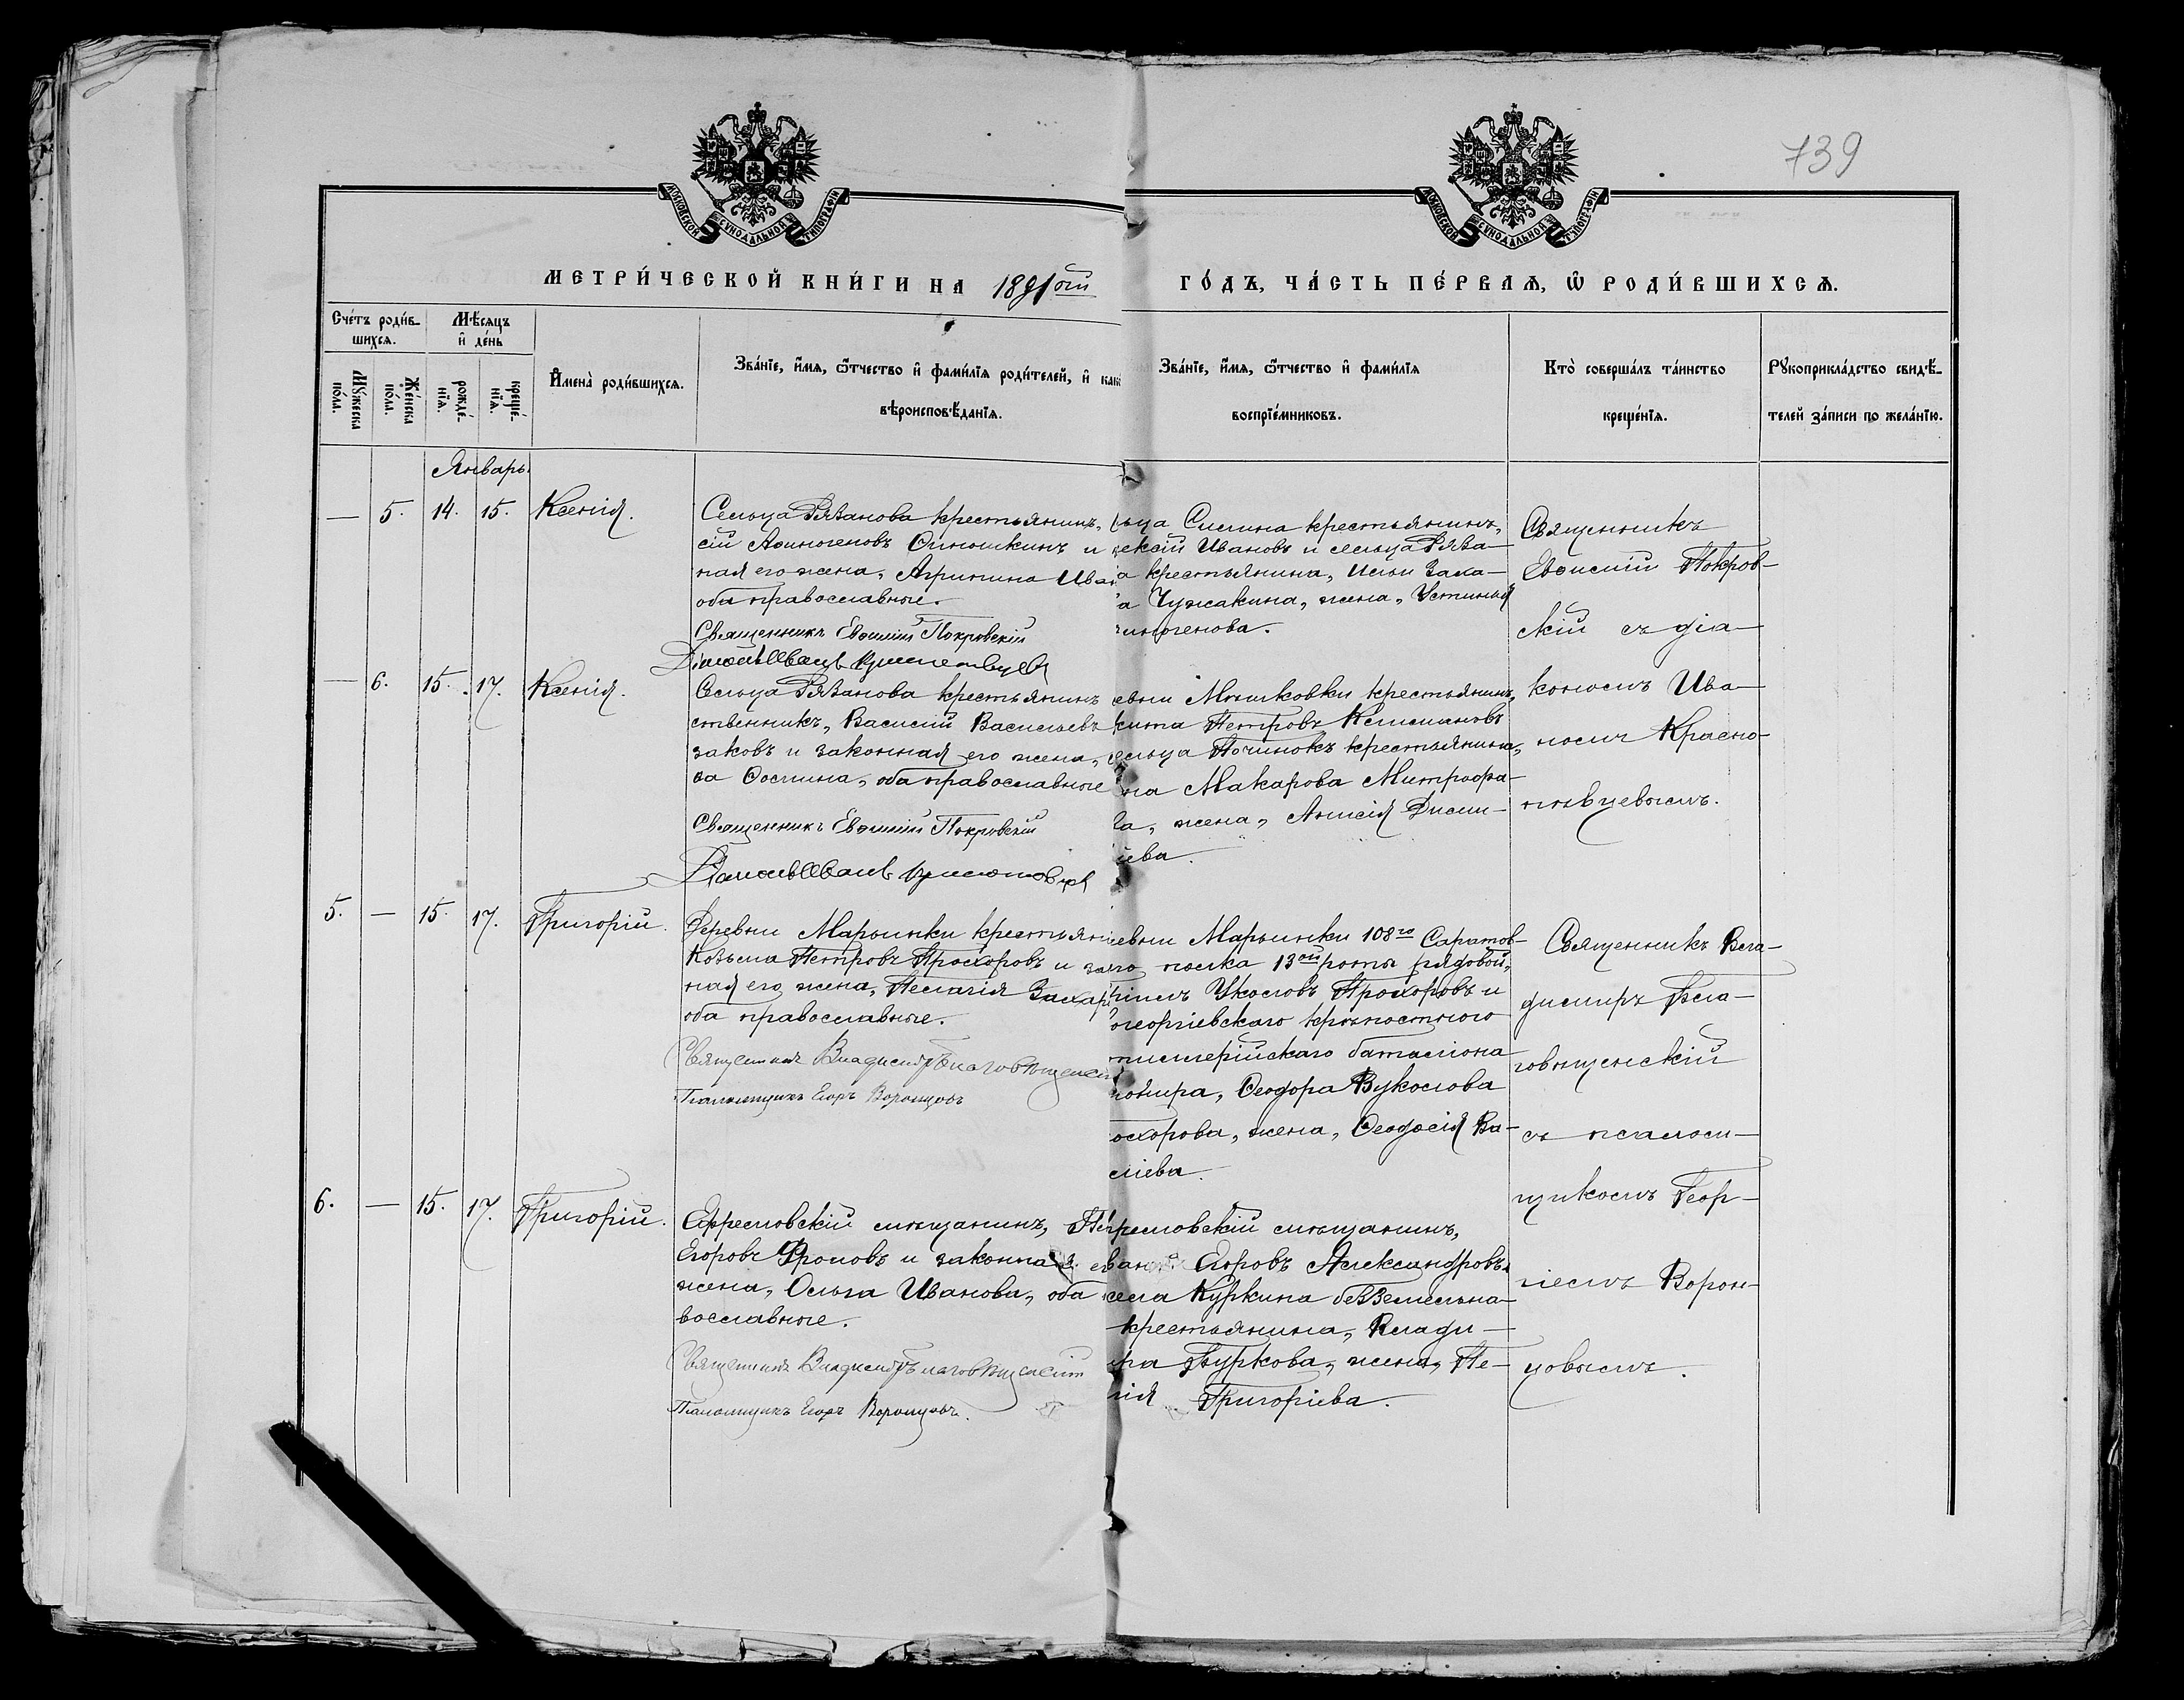 739
МОСКОВСКОЙ СѴНОДАЛЬНОЙ ТИПОГРАФІИ
МОСКОВСКОЙ СѴНОДАЛЬНОЙ ТИПОГРАФІИ
МЕТРИ́ЧЕСКОЙ КНИ́ГИ НА 1891ый
ГО́ДЪ, ЧА́СТЬ ПЕ́РВАѦ, Ѽ РОДИ́ВШИХСѦ.
Сче́тъ роди́в-
шихсѧ.
Мꙋ́жеска по́ла.
Же́нска по́ла.
Мѣ́сѧцъ и҆ де́нь
рожде́-
нїѧ.
креще́-
нїѧ.
И҆мена̀ роди́вшихсѧ.
Зва́нїе, и҆́мѧ, ѻ҆́тчество и҆ фами́лїѧ роди́телей, и҆ како
вѣроисповѣ́данїѧ.
Зва́нїе, и҆́мѧ, ѻ҆́тчество и҆ фами́лїѧ
воспрїе́мниковъ.
Кто̀ соверша́лъ та́инство
креще́нїѧ.
Рꙋкоприкла́дство свидѣ́-
телей за́писи по жела́нїю.
Январь.
— 5. 14. 15. Ксенія.
Сельца Рязанова крестьянинъ,
сій Аѳиногеновъ Ѳиношкинъ и
ная его жена, Агрипина Ива
оба православные.
Священникъ Евѳимій Покровскій
ьца Силина крестьянинъ,
ексій Ивановъ и сельца Ряза—
а крестьянина, Ильи Заха—
а Чужакина, жена, Устинья
иногенова.
Священникъ
Евѳимій Покров-
скій съ діа—
кономъ Ива—
номъ Красно-
пѣвцевымъ.
— 6. 15. 17. Ксенія.
Сельца Рязанова крестьянинъ
ственникъ, Василій Васильевъ
заковъ и законная его жена,
ва Ѳомина, оба православные
Священникъ Евѳимій Покровскій
евни Мошковки крестьянинъ,
кита Петровъ Климановъ
ельца Починокъ крестьянина,
на Макарова Митрофа—
ва, жена, Анисія Дими—
іева.
5. — 15. 17. Григорій.
Деревни Марьинки крестьяни
Козьма Петровъ Прохоровъ и за
ная его жена, Пелагія Захар
оба православные.
Священникъ Владиміръ Благовѣщенскій
Псаломщикъ Егоръ Воронцовъ
евни Марьинки 108го Саратов-
го полка 13ой роты рядовой,
ѳімъ Уколовъ Прохоровъ и
огеоргіевскаго крѣпостного
тиллерійскаго баталіона
нонира, Ѳеодора Вуколова
охорова, жена, Ѳеодосія Ва-
сліева.
Священникъ Вла-
диміръ Бла—
говѣщенскій
съ псалом—
щикомъ Геор—
гіемъ Ворон-
цовымъ.
6. — 15. 17. Григорій.
Ефремовскій мѣщанинъ, Пе
Егоровъ Фроловъ и законна
жена, Ольга Иванова, оба
вославные.
Священникъ Владиміръ Благовѣщенскій
Псаломщикъ Егоръ Воронцовъ.
фремовскій мѣщанинъ,
ван Егоровъ Александровъ
села Куркина безземельна—
крестьянина, Влади—
ра Буркова, жена, Пе—
гія Григорьева.